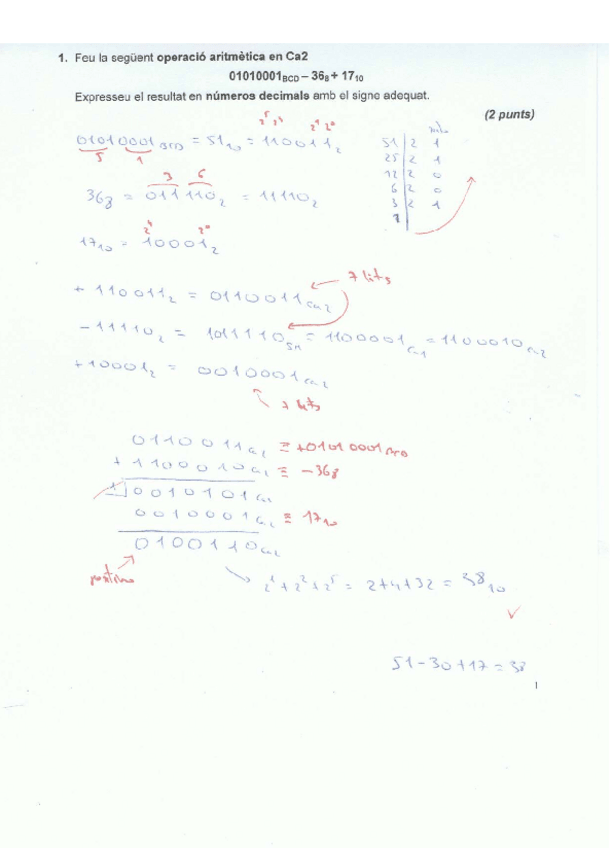 1. Feu la següent operació aritmètica en Ca2
01010001BCD – 368 + 1710
Expresseu el resultat en números decimals amb el signe adequat.
(2 punts)
2⁵ 2⁴ 2¹ 2⁰
01010001BCD = 5110 = 1100112
5 1
51 2 1
25 2 1
12 2 0
6 2 0
3 2 1
1
3 6
368 = 0111102 = 111102
2⁴ 2⁰
1710 = 100012
7 bits
+ 1100112 = 0110011Ca2
- 111102 = 1011110SM = 1100001Ca1 = 1100010Ca2
+ 100012 = 0010001Ca2
7 bits
0110011Ca2 ≡ +01010001BCD
+ 1100010Ca2 ≡ -368
1 0010101Ca2
0010001Ca2 ≡ 1710
0100110Ca2
positivo
2¹ + 2² + 2⁵ = 2+4+32 = 3810
✓
51 - 30 + 17 = 38
1